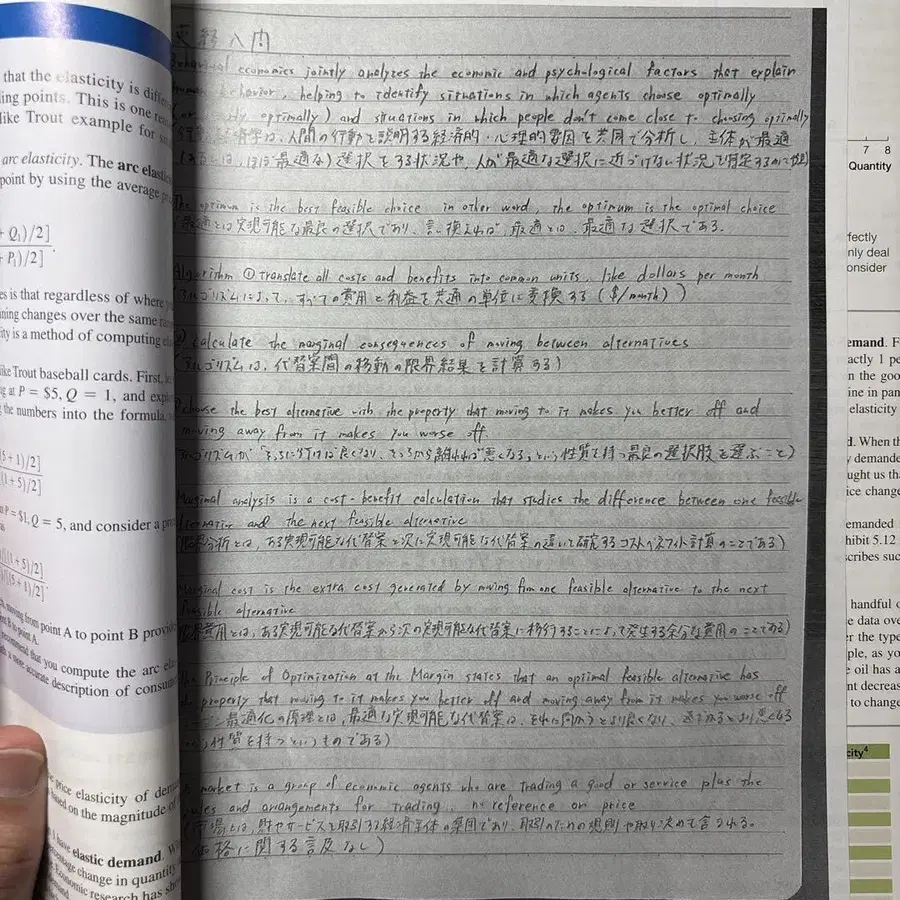 that the elasticity is
ling points. This is one
like Trout example for
arc elasticity. The arc
point by using the average
+ Q₁)/2]
+ P₁)/2]
es is that regardless of where
ining changes over the same
ity is a method of computing
ike Trout baseball cards. First,
g at P = $5, Q = 1, and
the numbers into the formula,
(5 + 1)/2]
(1 + 5)/2]
P = $1, Q = 5, and consider a
[(1 + 5)/2]
[(5 + 1)/2]
moving from point A to point B
point A.
recommend that you compute the arc
a more accurate description of
price elasticity of
based on the magnitude of
have elastic demand.
change in quantity
Economic research has
経入門
economics jointly analyzes the economic and psychological factors that explain
behavior, helping to identify situations in which agents choose optimally
optimally) and situations in which people don't come close to choosing optimally
経済学は、人間の行動を説明する経済的・心理的要因を共同で分析し、主体が最適
(あるいは、ほぼ最適な)選択をする状況や、人が最適な選択に近づけない状況を特定する
The optimum is the best feasible choice. in other word, the optimum is the optimal choice
最適とは実現可能な最良の選択であり、言い換えれば、最適とは、最適な選択である。
Algorithm ① translate all costs and benefits into common units, like dollars per month
アルゴリズムによって、すべての費用と利益を共通の単位に変換する ($/month))
calculate the marginal consequences of moving between alternatives
アルゴリズムは、代替案間の移動の限界結果を計算する)
choose the best alternative with the property that moving to it makes you better off and
moving away from it makes you worse off.
アルゴリズムが「そっちに行けば良くなり、そっちから離れれば悪くなる」という性質を持つ最良の選択肢を選ぶこと)
Marginal analysis is a cost-benefit calculation that studies the difference between one feasible
alternative and the next feasible alternative
(限界分析とは、ある実現可能な代替案と次に実現可能な代替案の違いを研究するコストベネフィット計算のことである)
Marginal cost is the extra cost generated by moving from one feasible alternative to the next
feasible alternative
限界費用とは、ある実現可能な代替案から次の実現可能な代替案に移行することによって発生する余分な費用のことである)
Principle of Optimization at the Margin states that an optimal feasible alternative has
property that moving to it makes you better off and moving away from it makes you worse off
最適化の原理とは、最適な実現可能な代替案は、それに向かうとより良くなり、遠ざかるとより悪くなる
性質を持つというものである)
market is a group of economic agents who are trading a good or service plus the
and arrangements for trading, no reference on price
(市場とは、財やサービスを取引する経済主体の集団であり、取引のための規則や取り決めで言われる。
価格に関する言及なし)
7 8
Quantity
fectly
nly deal
onsider
emand. F
actly 1 pe
n the goo
ine in pan
elasticity
d. When th
y demande
ught us tha
ice change
emanded
hibit 5.12
scribes suc
handful o
e data ove
er the type
ple, as yo
e oil has a
nt decreas
to change
city⁴